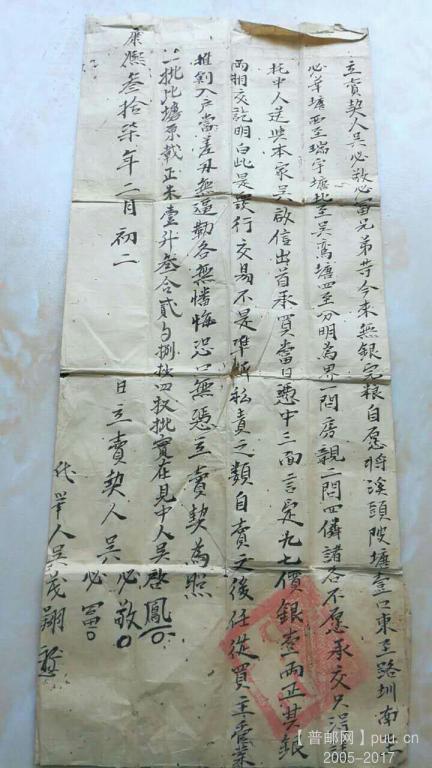 立賣契人吳必敬必富兄弟等今來無銀完粮自愿將溪頭陂塘壹口東至路圳南至
必華塘西至瑞宇塘北至吳鳶塘四至分明為界一問房親二問四鄰諸各不愿承交只得
托中人送與本家吳啟信出首承買當日憑中三面言定九七價銀壹両正其銀
両相交訖明白此是实行交易不是準折私責之類自賣之後任從買主管業
推割入戶當差并無逼勒各無憣悔恐口無憑立賣契為照
一批此塘原載正米壹升叁合貳勺捌抄四 批實在見中人吳啓鳳
康熙叁拾柒年二月初二日立賣契人吳必敬
必富
代筆人吳茂翔
【普邮网】puu.cn
2005-2017